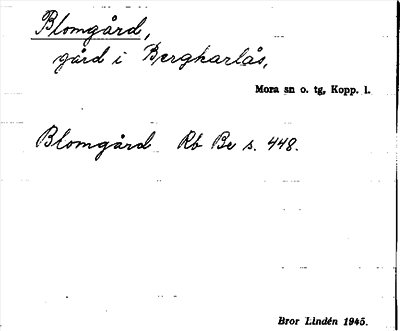 Blomgård,
gård i Bergkarlås,
Mora sn o. tg, Kopp. l.
Blomgård Rb Be s. 448.
Bror Lindén 1945.